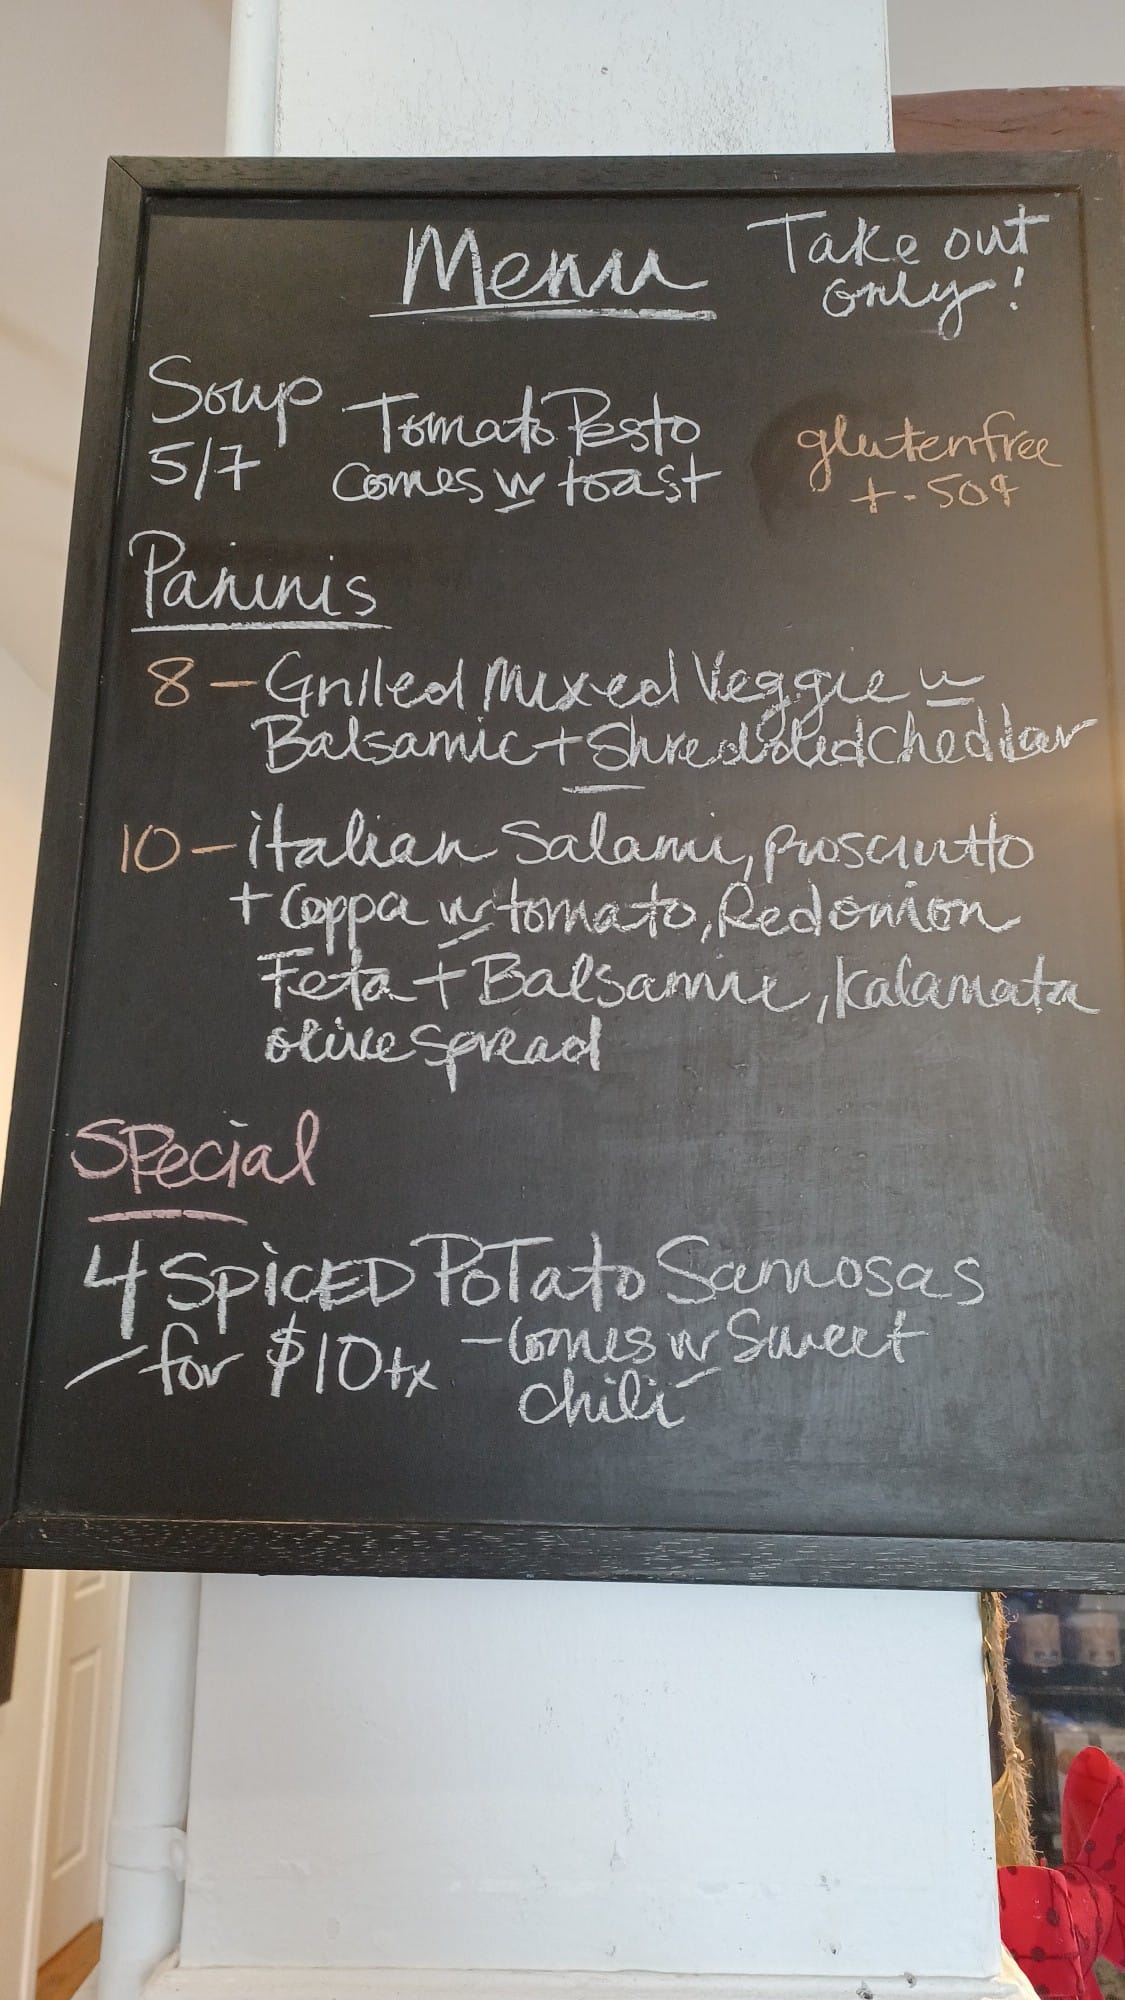 Menu
Take out
only!
Soup
5/7
Tomato Pesto
comes w toast
glutenfree
+ .50¢
Paninis
8 - Grilled Mixed Veggie w
Balsamic + Shredded Cheddar
10 - italian Salami, prosciutto
+ Coppa w tomato, Red onion
Feta + Balsamic, Kalamata
olive spread
SPecial
4 SPiCED PoTato Samosas
for $10+x - Comes w Sweet
chili